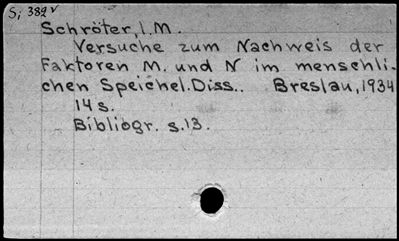 S, 382 v
Schröter, I. M.
Versuche zum Nachweis der
Faktoren M. und N im menschli-
chen Speichel. Diss.. Breslau, 1934
14 s.
Bibliogr. s. 13.